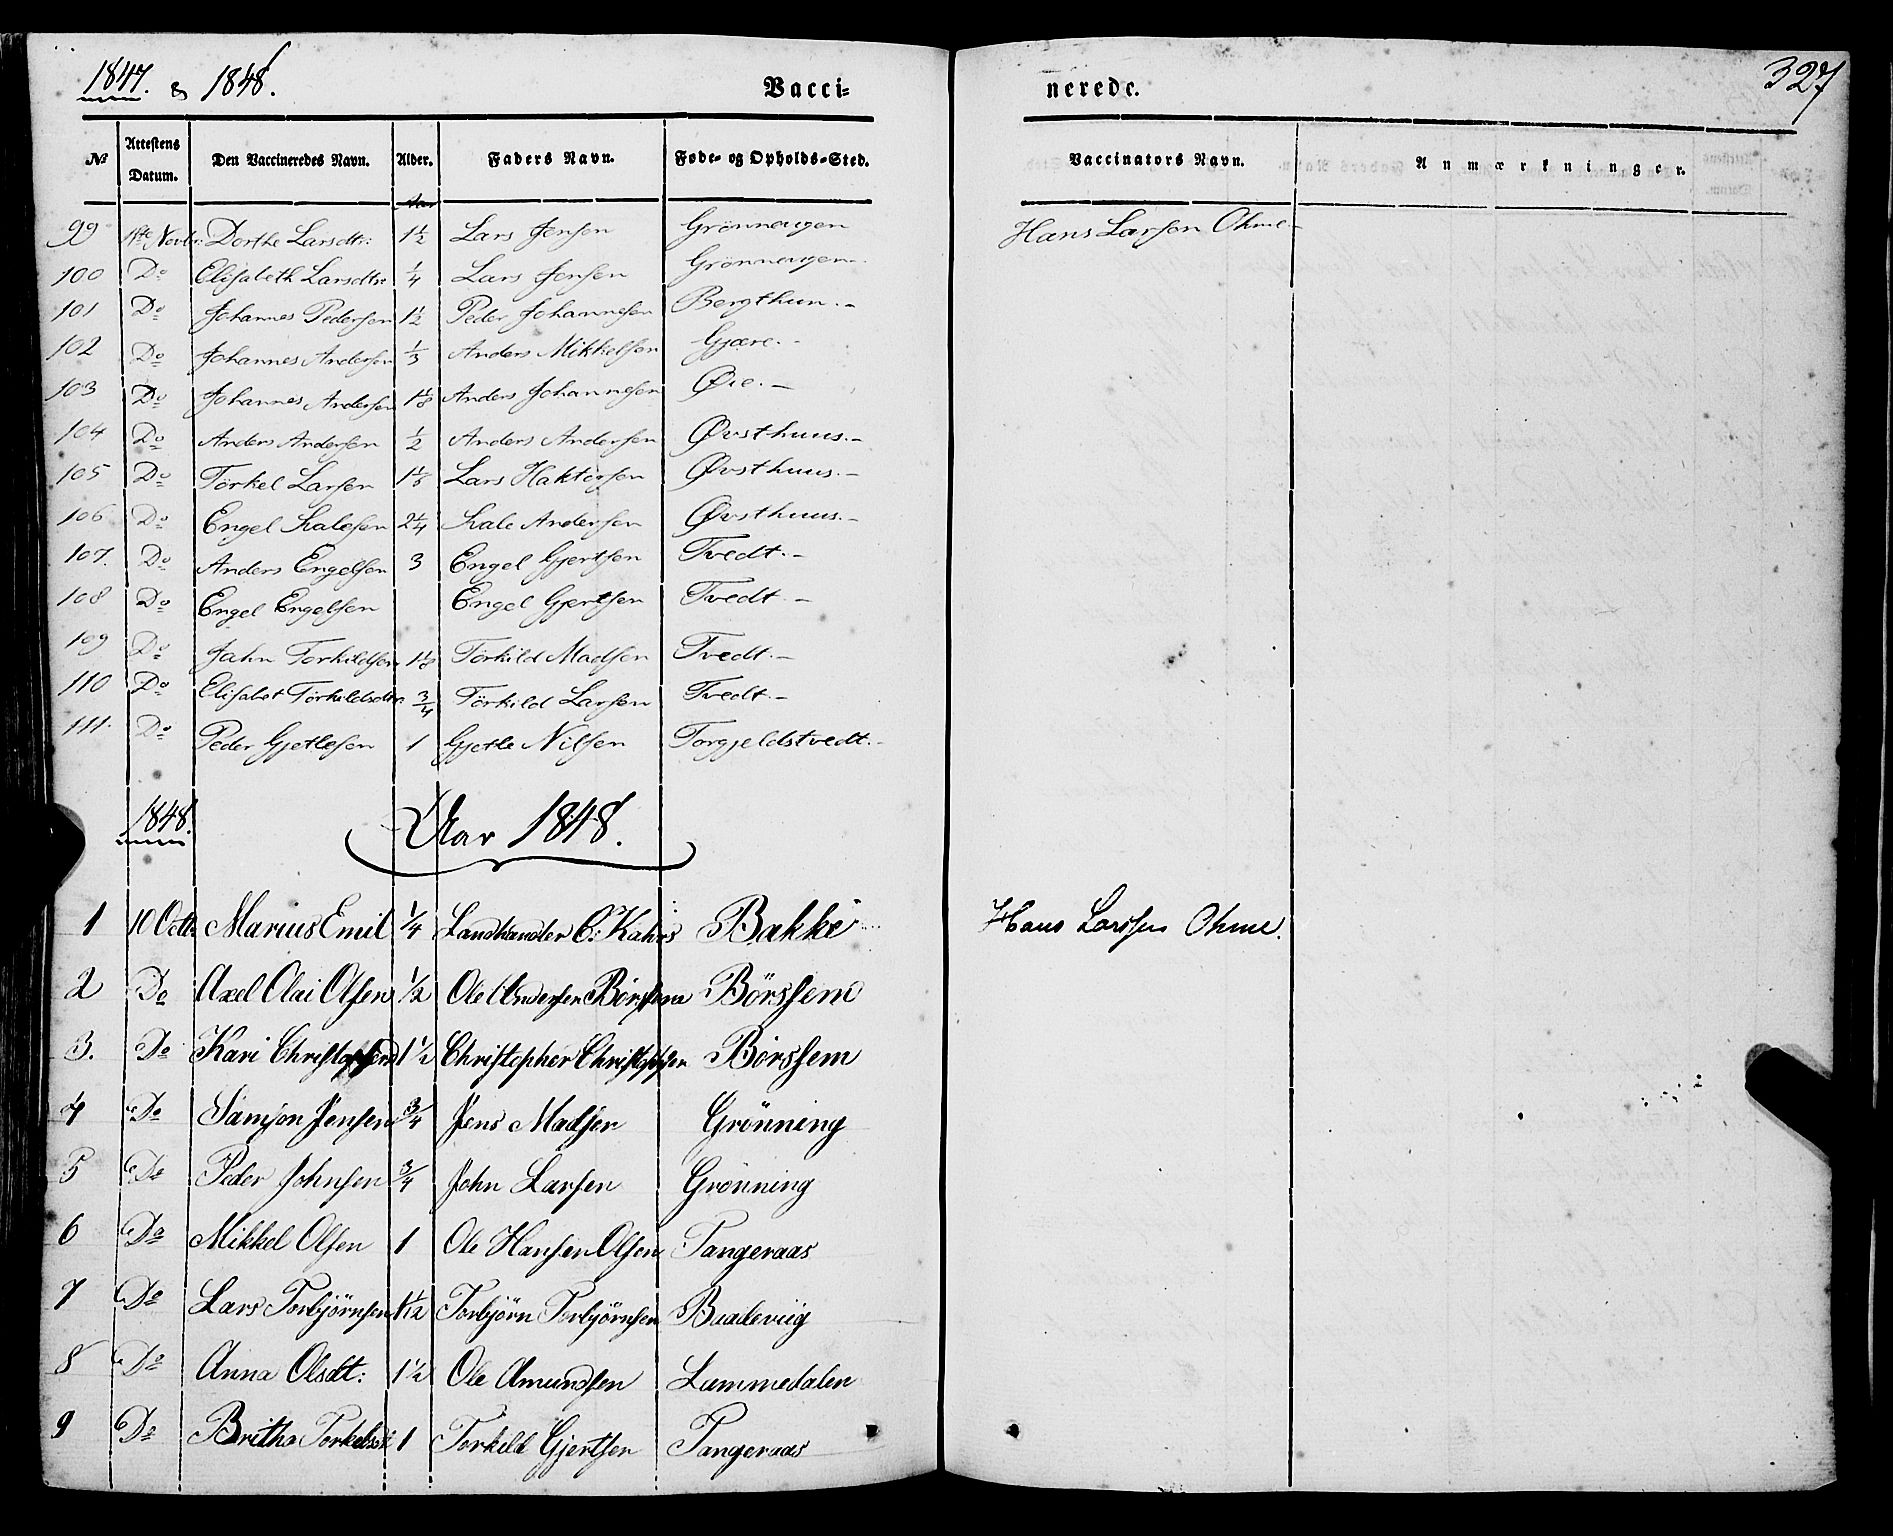 1847. & 1848. Vacci- nerede. 327
№ Attestens Datum. Den Vaccineredes Navn. Alder. Faders Navn. Føde- og Opholds-Sted. Vaccinators Navn. Anmærkninger.
Aar
99 Novbr: Dorthe Larsdtr: 1½ Lars Jensen Grönnevigen Hans Larsen Ohme
100 Do Elisabeth Larsdtr: ¼ Lars Jensen Grönnevigen
101 Do Johannes Pedersen 1½ Peder Johannesen Bergthun.-
102 Do Johannes Andersen ⅓ Anders Mikkelsen Gjære.-
103 Do Johannes Andersen 1⅛ Anders Johannesen Øie.-
104 Do Anders Andersen ½ Anders Andersen Øvsthuus.-
105 Do Törkel Larsen Lars Haktorsen Øvsthuus.-
106 Do Engel Salesen 2¼ Sale Andersen Øvsthuus.-
107. Do Anders Engelsen 3 Engel Gjertsen Tvedt.-
108 Do Engel Engelsen Engel Gjertsen Tvedt.-
109 Do Jahn Torkildsen 1⅛ Törkild Madsen Tvedt.-
110 Do Elisabet Törkildsdtr ¾ Törkild Larsen Tvedt.-
111. Do Peder Gjetlesen 1 Gjetle Nilsen Torgjeldstvedt.-
1848. Aar 1848.
1 10 Octbr Marius Emil ¼ Landhandler C: Kahrs Bakke Hans Larssen Ohme.
2 Do Axel Olai Olsen ½ Ole Andersen Börssem Börssem
3. Do Kari Christophersd 1½ Christopher Christophersen Börssem
4 Do Samson Jensen ¾ Jens Madsen Grönning
5 Do Peder Johnsen ¾ John Larsen Grönning
6 Do Mikkel Olsen 1 Ole Hansen Olsen Tangeraas
7 Do Lars Torbjörnsen 1½ Torbjörn Torbjörnsen Baadeviig
8 Do Anna Olsdt: 1½ Ole Amundsen Lammedalen
9 Do Britha Torkelsdt 1 Torkild Gjertsen Tangeraas